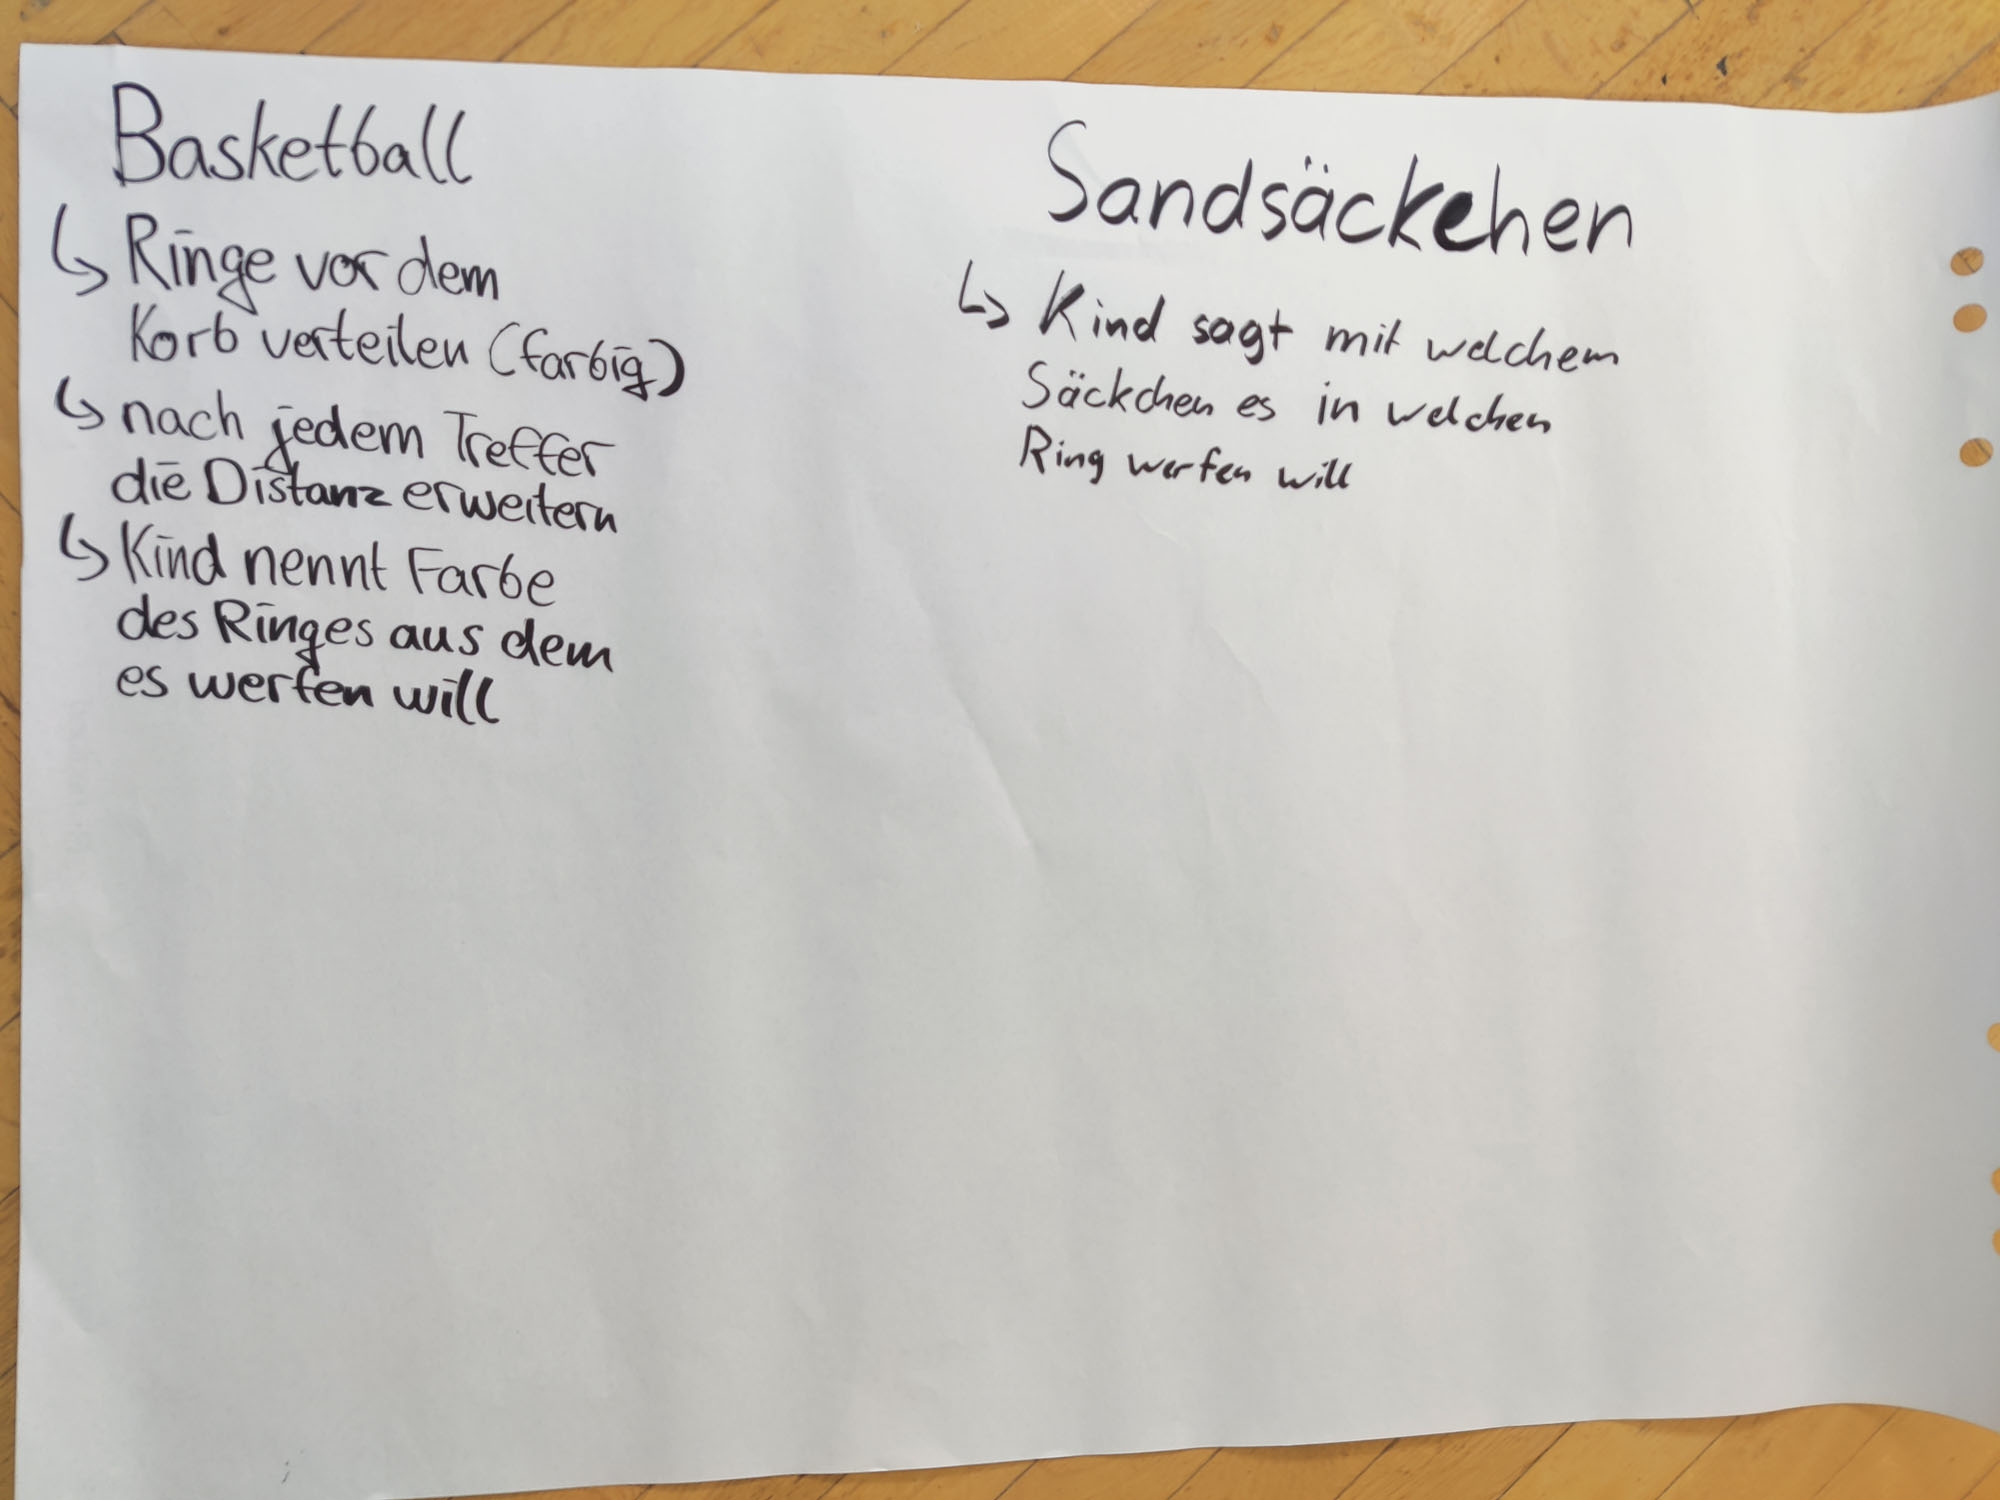 Basketball
↳ Ringe vor dem
Korb verteilen (farbig)
↳ nach jedem Treffer
die Distanz erweitern
↳ Kind nennt Farbe
des Ringes aus dem
es werfen will
Sandsäckchen
↳ Kind sagt mit welchem
Säckchen es in welchen
Ring werfen will